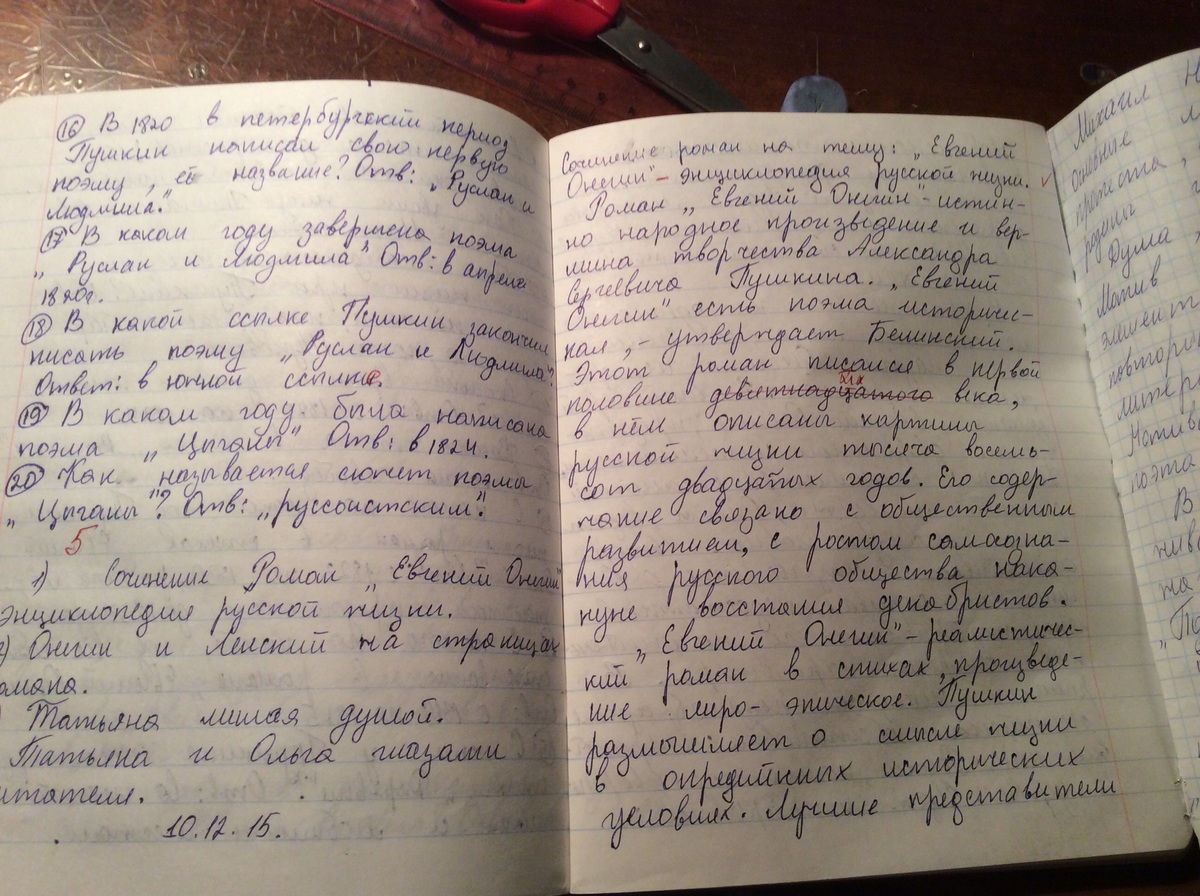 ⑯ В 1820 в петербургский период
Пушкин написал свою первую
поэму, её название? Отв: „Руслан и
Людмила."
⑰ В каком году завершена поэма
„Руслан и Людмила" Отв: в апреле
1820г.
⑱ В какой ссылке Пушкин закончил
писать поэму „Руслан и Людмила"?
Ответ: в южной ссылке.
⑲ В каком году была написана
поэма „Цыганы" Отв: в 1824.
⑳ Как называется сюжет поэмы
„Цыганы"? Отв: „руссоистским".
5
1) Сочинение Роман „Евгений Онегин"
энциклопедия русской жизни.
) Онегин и Ленский на страницах
омана.
Татьяна милая душой.
Татьяна и Ольга глазами
итателя.
10.12.15.
Сочинение роман на тему: „Евгений
Онегин" – энциклопедия русской жизни.
Роман „Евгений Онегин" – истин-
но народное произведение и вер-
шина творчества Александра
Сергеевича Пушкина. „Евгений
Онегин" есть поэма историчес-
кая, – утверждает Белинский.
Этот роман писался в первой
половине деветнадцатого XIX века,
в нём описаны картины
русской жизни тысяча восемь-
сот двадцатых годов. Его содер-
жание связано с общественным
развитием, с ростом самосозна-
ния русского общества нака-
нуне восстания декабристов.
„Евгений Онегин" – реалистичес-
кий роман в стихах, произведе-
ние лиро-эпическое. Пушкин
размышляет о смысле жизни
в определённых исторических
условиях. Лучшие представители
Михаил
основные
протеста,
родины
Дума
Мотив
элемент
повтори
литер
Мотив
поэта
В
живо
на
„По